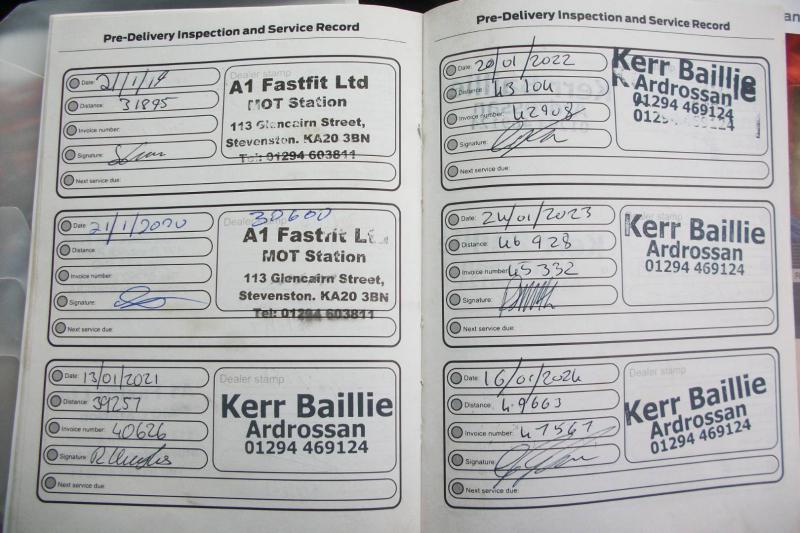 Pre-Delivery Inspection and Service Record
Date: 21/1/19
Distance: 31895
Invoice number:
Signature:
Next service due:
Dealer stamp
A1 Fastfit Ltd
MOT Station
113 Glencairn Street,
Stevenston. KA20 3BN
Tel: 01294 603811
Date: 21/1/2020
Distance:
Invoice number:
Signature:
Next service due:
Dealer stamp
A1 Fastfit Ltd
MOT Station
113 Glencairn Street,
Stevenston. KA20 3BN
Tel: 01294 603811
Date: 13/01/2021
Distance: 39257
Invoice number: 40626
Signature:
Next service due:
Dealer stamp
Kerr Baillie
Ardrossan
01294 469124
Pre-Delivery Inspection and Service Record
Date: 20/01/2022
Distance: 43104
Invoice number: 42908
Signature:
Next service due:
Kerr Baillie
Ardrossan
01294 469124
Date: 24/01/2023
Distance: 46928
Invoice number: 45332
Signature:
Next service due:
Kerr Baillie
Ardrossan
01294 469124
Date: 16/01/2024
Distance: 49663
Invoice number: 47561
Signature:
Next service due:
Dealer stamp
Kerr Baillie
Ardrossan
01294 469124